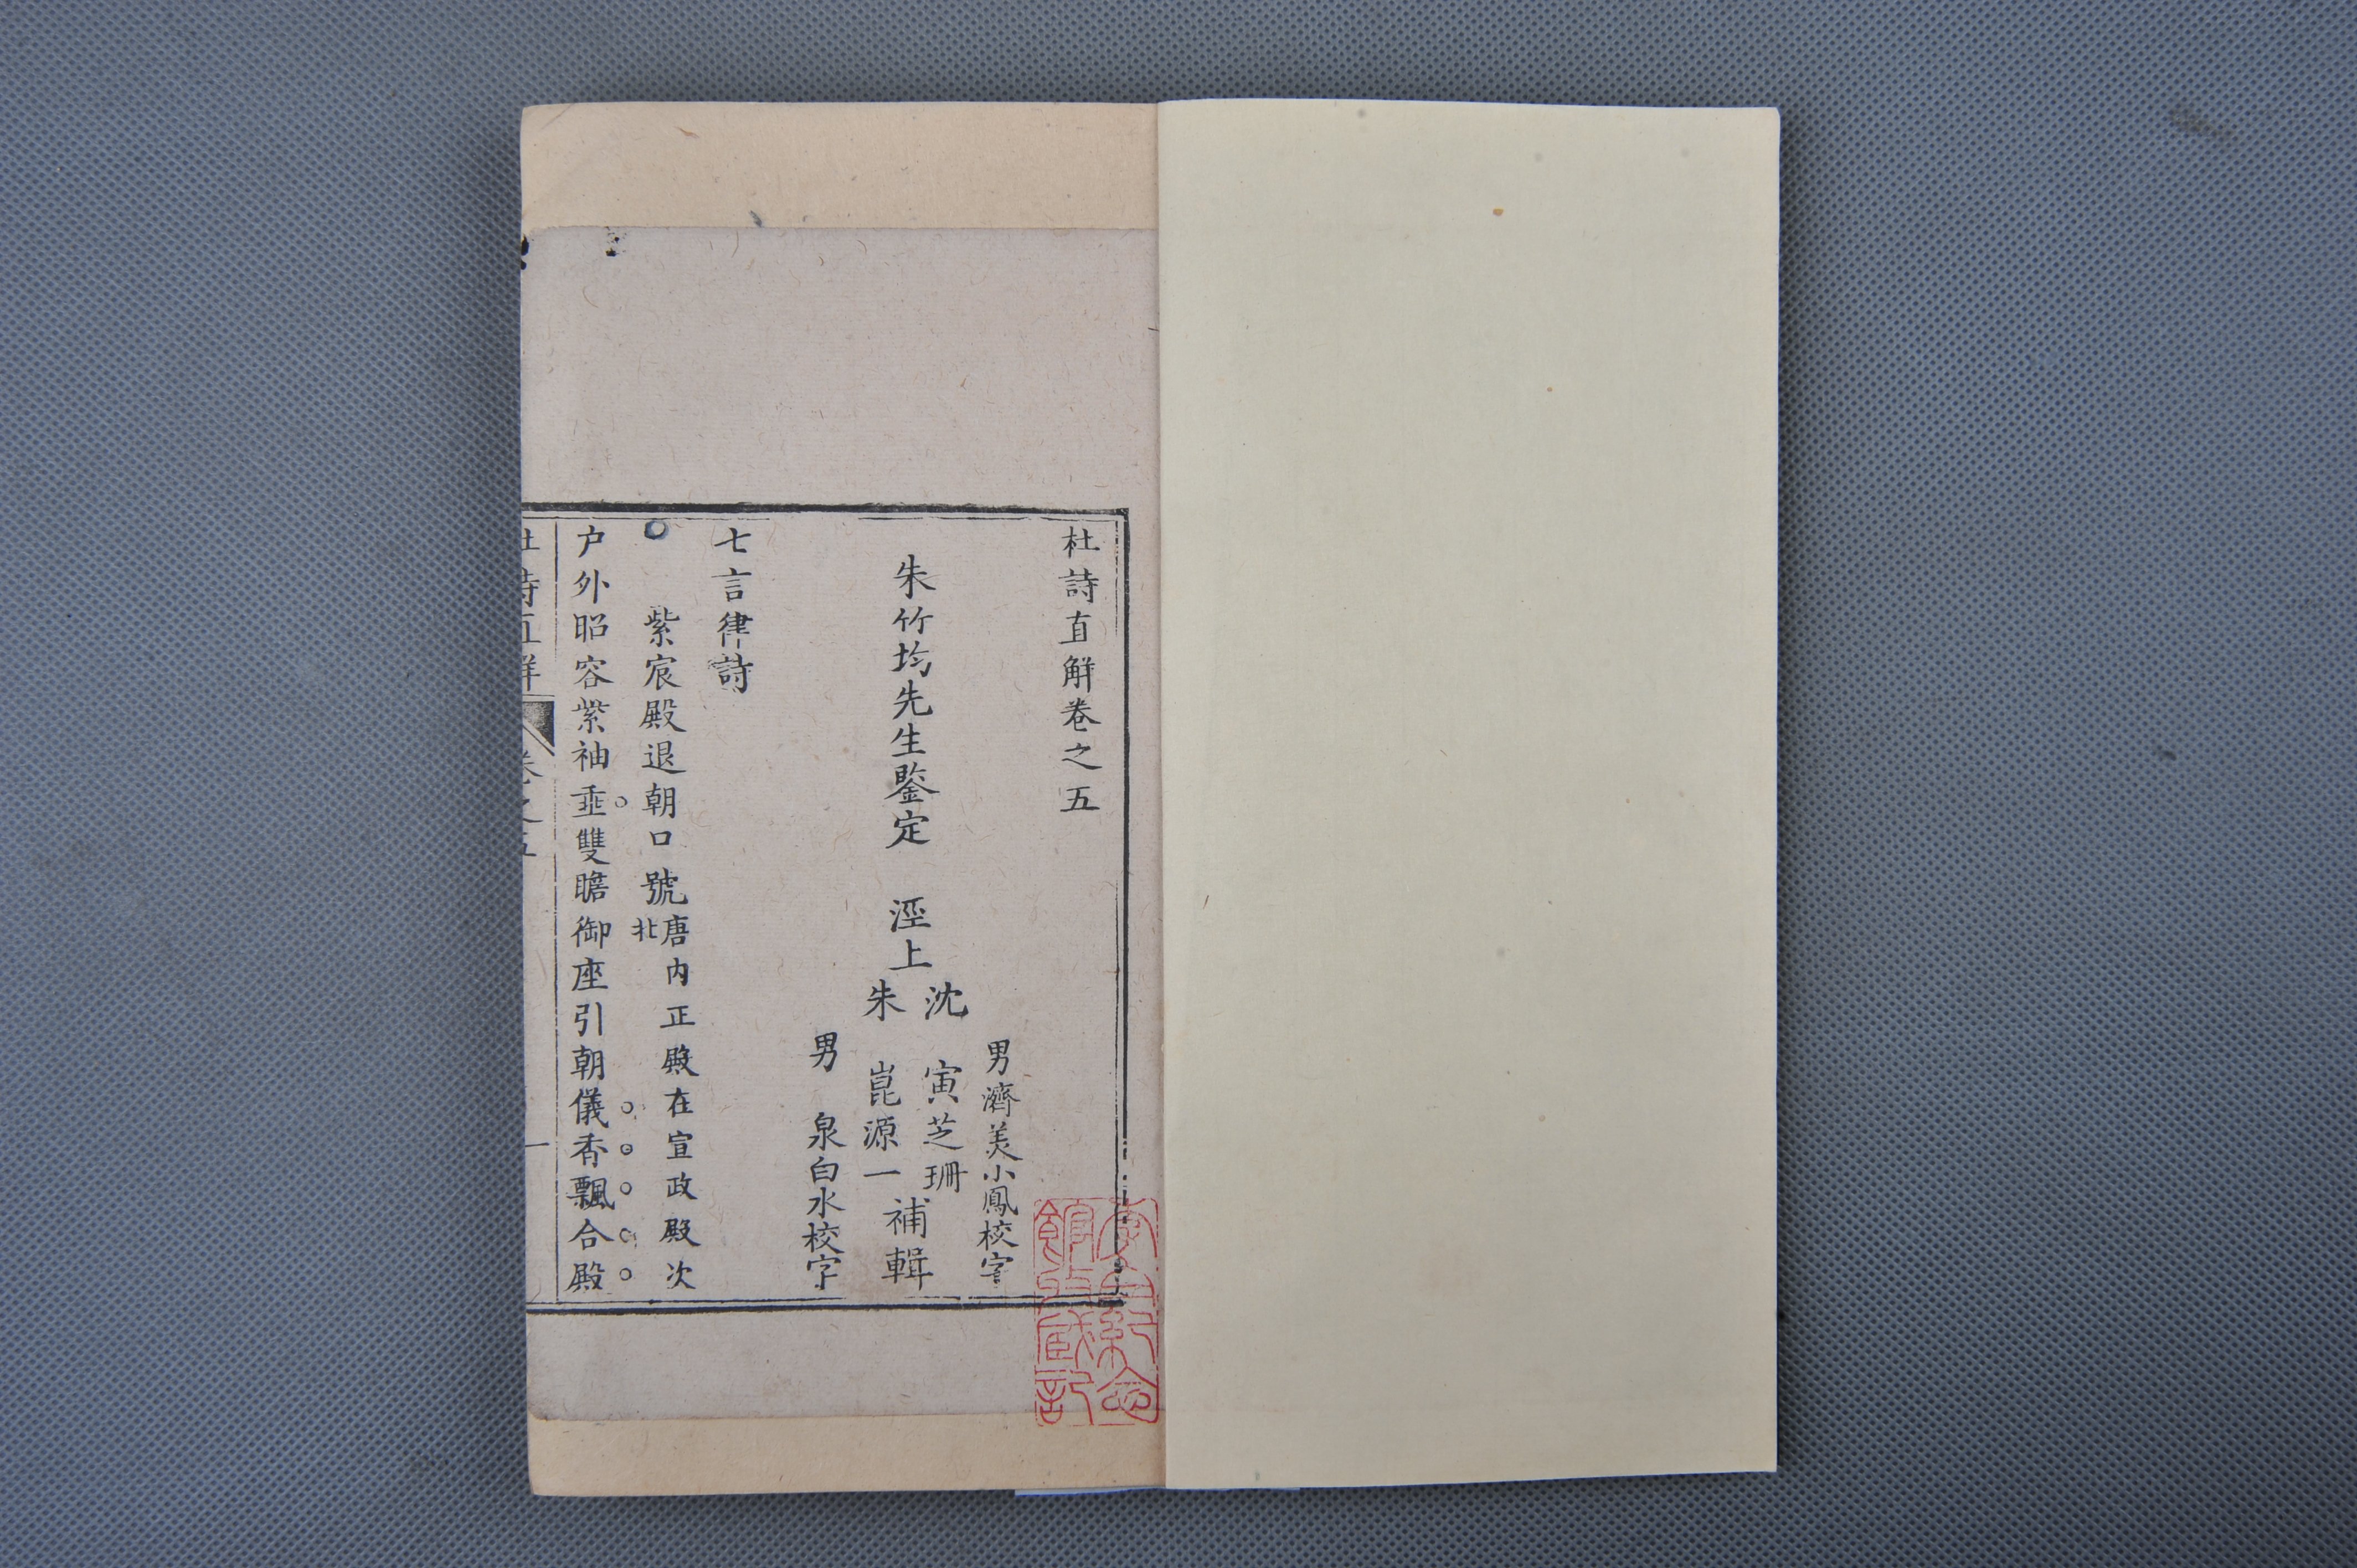 杜詩直解卷之五
男濟美小鳳校字
沈寅芝珊
朱竹均先生鑒定 涇上
補輯
朱崑源一
男泉白水校字
七言律詩
紫宸殿退朝口號
唐内正殿在宣政殿次
北
户外昭容紫袖垂雙瞻御座引朝儀香飄合殿
杜詩直解 卷之五 一